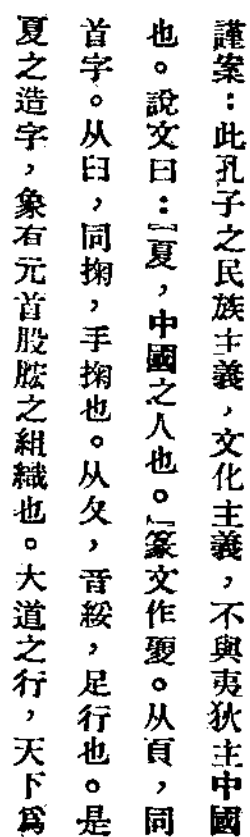 謹案：此孔子之民族主義，文化主義，不與夷狄主中國
也。說文曰：『夏，中國之人也。』篆文作夓。从頁，同
首字。从臼，同掬，手掬也。从夂，音綏，足行也。是
夏之造字，象有元首股肱之組織也。大道之行，天下爲